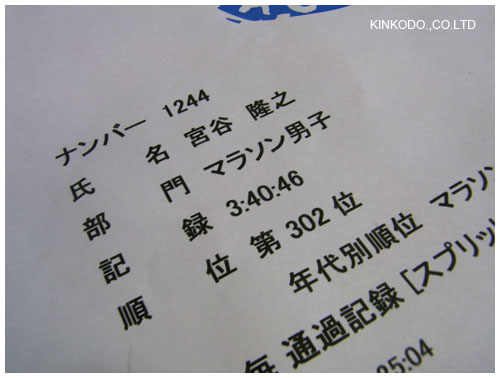 KINKODO.,CO.LTD
ナンバー 1244
氏 名 宮谷 隆之
部 門 マラソン男子
記 録 3:40:46
順 位 第 302 位
年代別順位 マラソ
毎 通過記録 [スプリッ
25:04